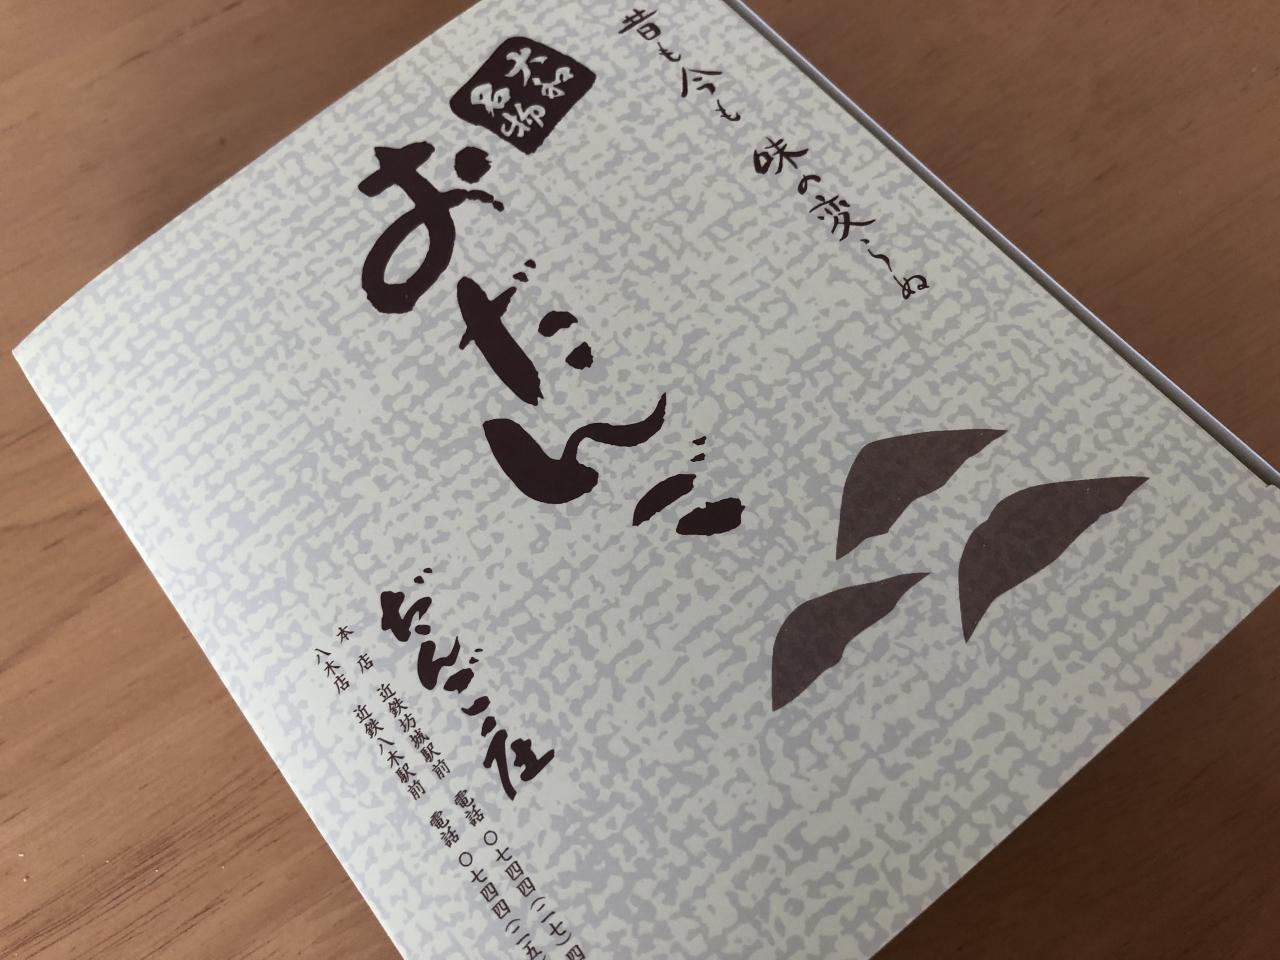 昔も今も 味の変らぬ
大和
名物
おだんご
だんご庄
本店 近鉄坊城駅前 電話 〇七四四(二七)四
八木店 近鉄八木駅前 電話 〇七四四(二五)